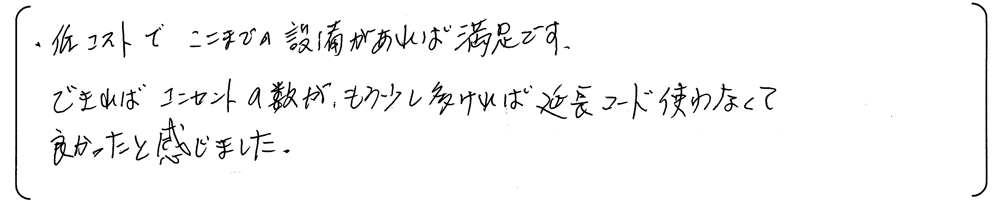 ・低コストで ここまでの設備があれば満足です.
できればコンセントの数が、もう少し多ければ延長コード使わなくて
良かったと感じました.